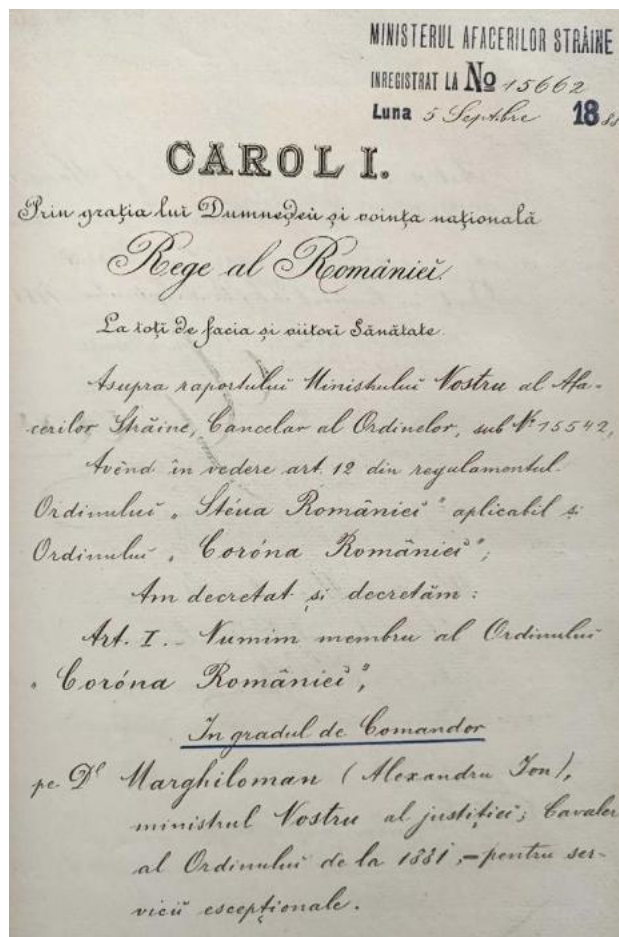 MINISTERUL AFACERILOR STRĂINE
INREGISTRAT LA No 15662
Luna 5 Septbre 18
CAROL I.
Prin grația lui Dumnedeŭ și voința națională
Rege al Românieĭ.
La toți de facia și viitorĭ Sănătate.
Asupra raportuluĭ Ministruluĭ Nostru al Afa-
cerilor Străine, Cancelar al Ordinelor, sub No 15542,
Avênd în vedere art. 12 din regulamentul
Ordinuluĭ „Stéua Românieĭ" aplicabil și
Ordinuluĭ „Coróna Românieĭ";
Am decretat și decretăm:
Art. I. – Numim membru al Ordinuluĭ
„Coróna Românieĭ",
In gradul de Comandor
pe Dl Marghiloman (Alexandru Ion),
ministrul Nostru al justițieĭ; Cavaler
al Ordinuluĭ de la 1881, – pentru ser-
viciĭ escepționale.